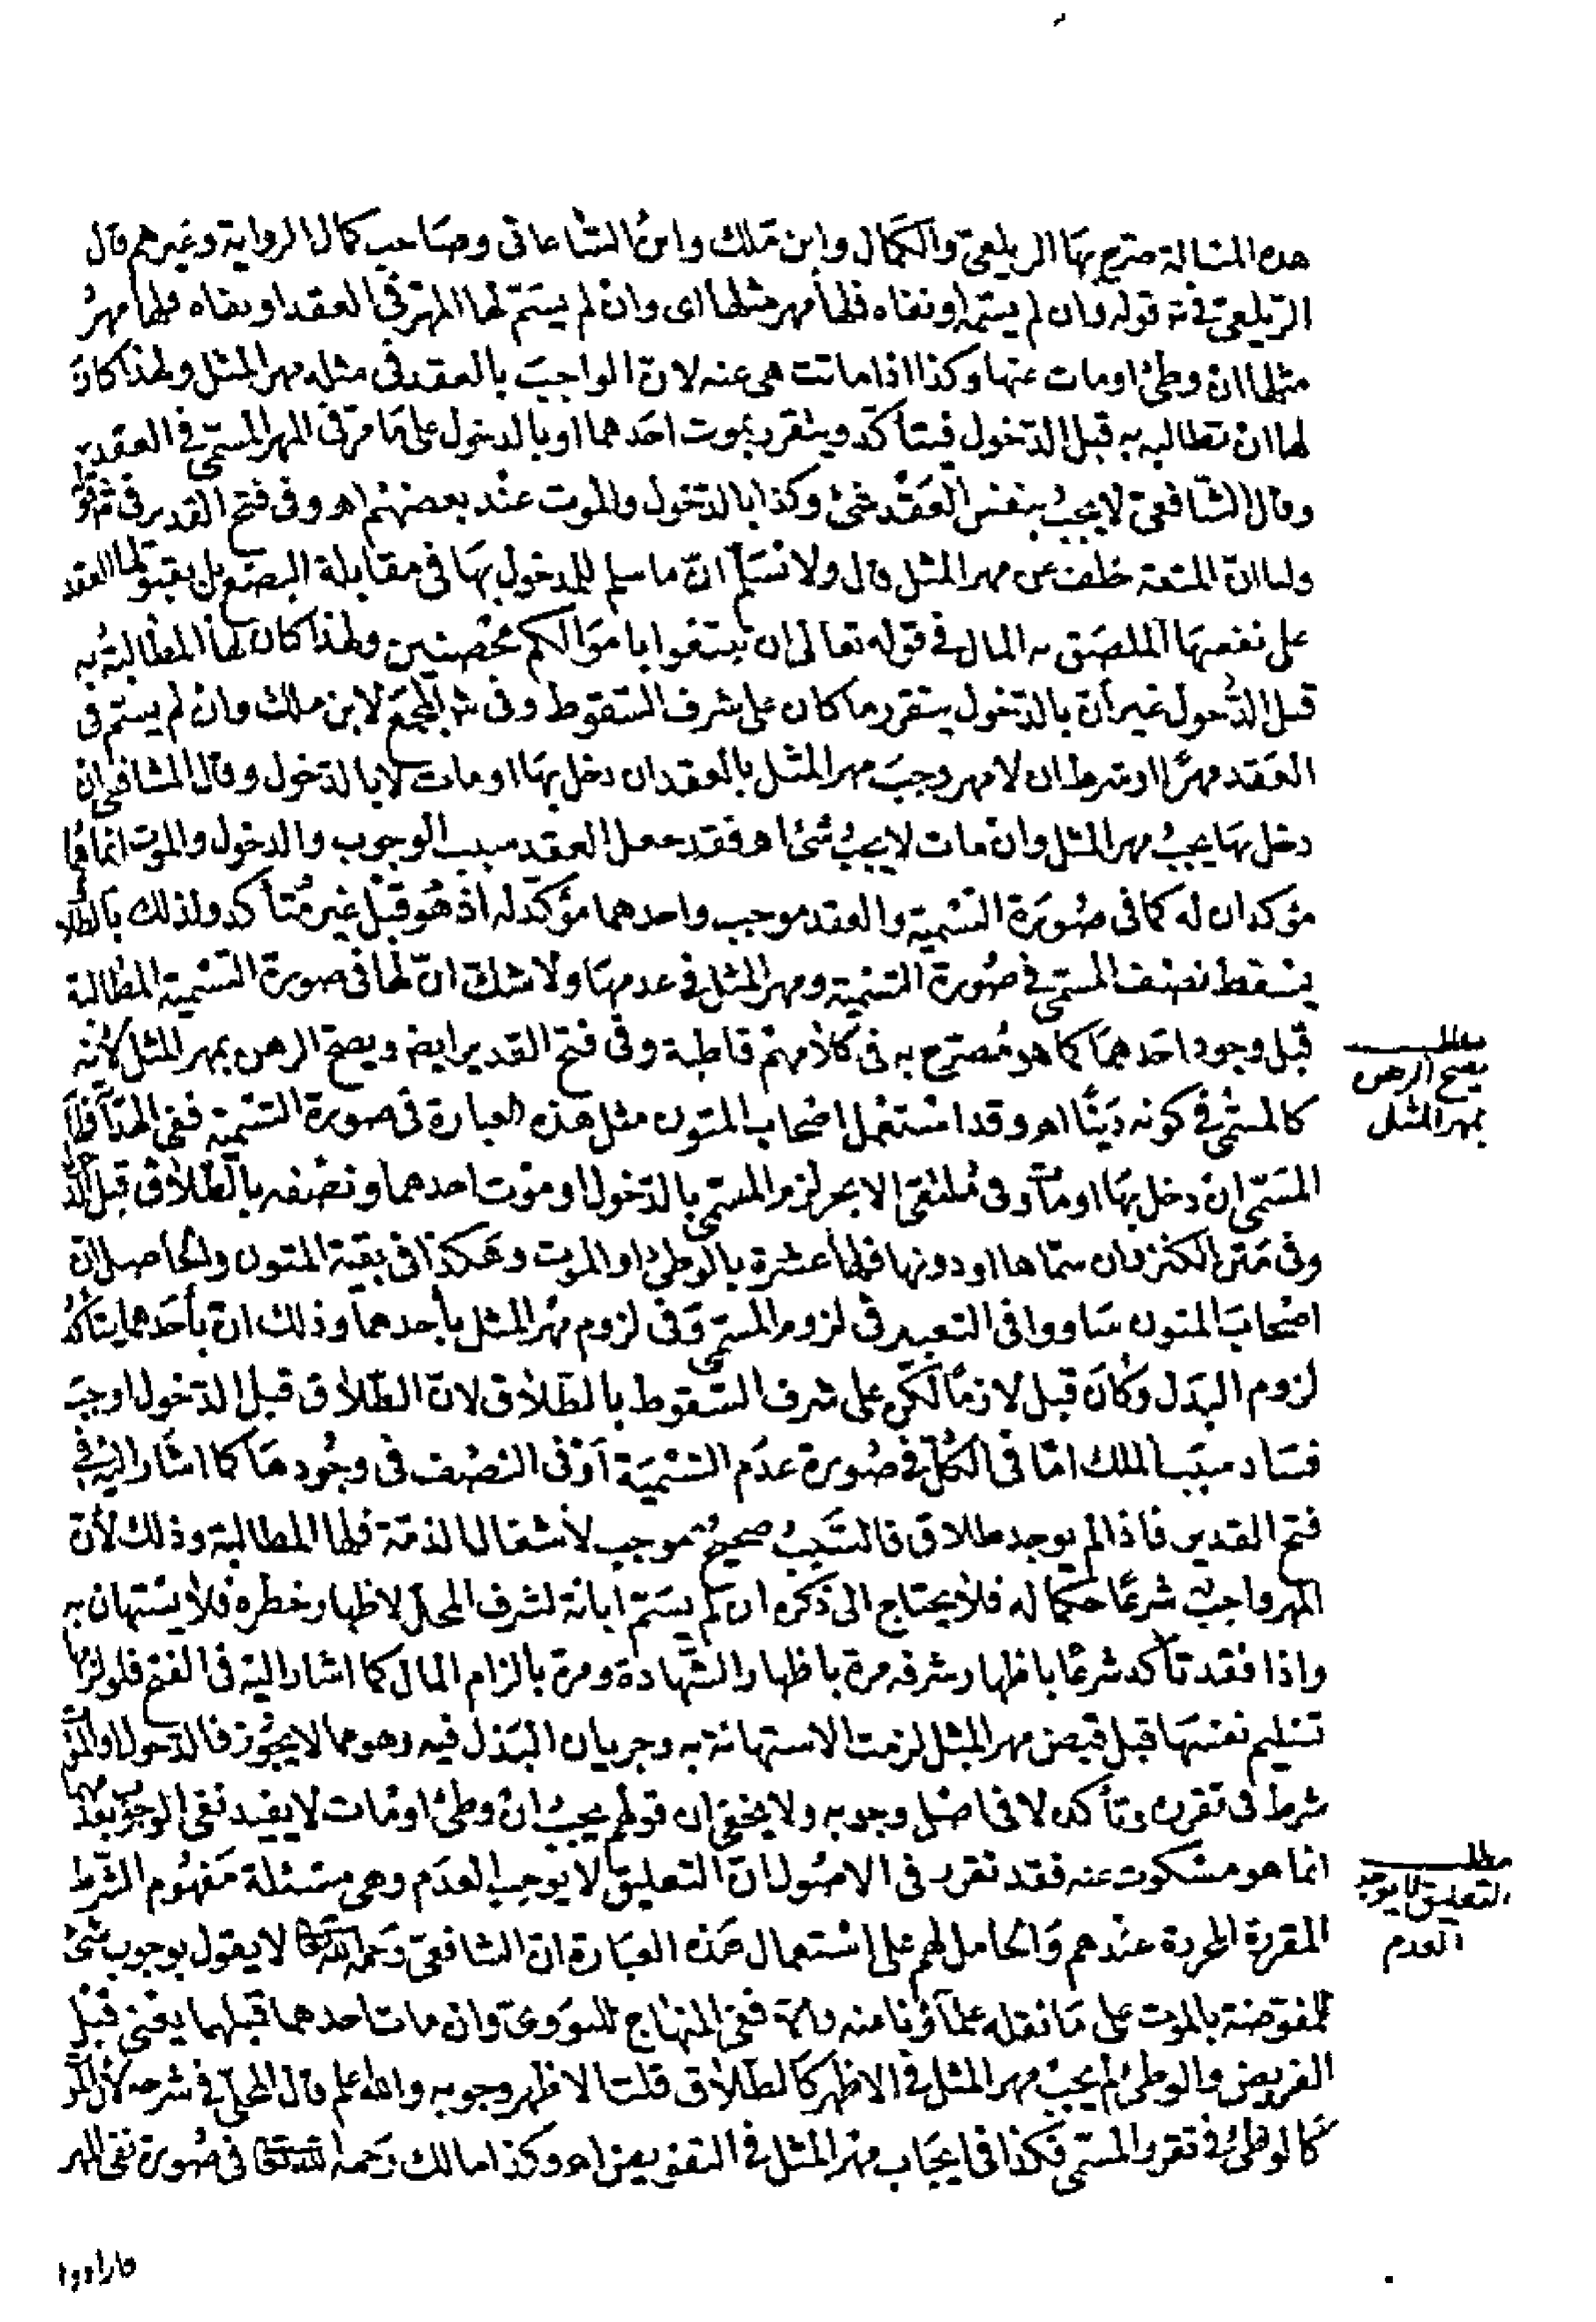 هذه المسالة صرح بها الزيلعي والكمال وابن ملك وابن الساعاتي وصاحب كمال الرواية وغيرهم قال
الزيلعي في قوله وان لم يسمه او نفاه فلها مهر مثلها اى وان لم يسم لها المهر في العقد او نفاه فلها مهر
مثلها ان وطئ او مات عنها وكذا اذا ماتت هى عنه لان الواجب بالعقد فى مثله مهر المثل ولهذا كان
لها ان تطالبه به قبل الدخول فيتأكد ويتقرر بموت احدهما او بالدخول على ما مر في المهر المسمى في العقد
وقال الشافعي لا يجب بنفس العقد شئ وكذا بالدخول والموت عند بعضهم اه وفى فتح القدير فى
ولنا ان المتعة خلف عن مهر المثل قال ولا نسلم ان ما سلم للمدخول بها فى مقابلة البضع بل بقبولها العقد
على نفسها الملصق به المال في قوله تعالى ان تبتغوا باموالكم محصنين ولهذا كان لها المطالبة به
قبل الدخول غير ان بالدخول يتقرر ما كان على شرف السقوط وفى شرح المجمع لابن ملك وان لم يسم فى
العقد مهرًا او شرط ان لا مهر وجب مهر المثل بالعقد ان دخل بها او مات لا بالدخول وقال الشافعي ان
دخل بها يجب مهر المثل وان مات لا يجب شئ اه فقد جعل العقد سبب الوجوب والدخول والموت انما
مؤكدان له كما فى صورة التسمية والعقد موجب واحدهما مؤكد له اذ هو قبل غير متأكد ولذلك بالطلا
يسقط نصف المسمى في صورة التسمية ومهر المثل في عدمها ولا شك ان لها فى صورة التسمية المطالبة
قبل وجود احدهما كما هو مصرح به فى كلامهم قاطبة وفى فتح القدير ايضا ويصح الرهن بمهر المثل لأنه
مطلب يصح الرهن بمهر المثل
كالمسمى في كونه دينًا اه وقد استعمل اصحاب المتون مثل هذه العبارة فى صورة التسمية ففى
المسمى ان دخل بها او مات وفى ملتقى الابحر لزم المسمى بالدخول او موت احدهما ونصفه بالطلاق قبل
وفى متن الكنز فان سماها او دونها فلها عشرة بالوطئ او الموت وهكذا فى بقية المتون والحاصل ان
اصحاب المتون ساووا فى التعبير فى لزوم المسمى وفى لزوم مهر المثل بأحدهما وذلك ان بأحدهما يتأكد
لزوم البدل وكان قبل لازمًا لكن على شرف السقوط بالطلاق لان الطلاق قبل الدخول اوجب
فساد سبب الملك اما فى الكل في صورة عدم التسمية او فى النصف فى وجودها كما اشار اليه في
فتح القدير فاذا لم يوجد طلاق فالسبب صحيح موجب لأشغال الذمة فلها المطالبة وذلك لأن
المهر واجب شرعًا حكما له فلا يحتاج الى ذكره ان لم يسم ابانة لشرف المحل لاظهار خطره فلا يستهان به
واذا فقد تأكد شرعًا باظهار شرفه مرة باظهار الشهادة ومرة بالزام المال كما اشار اليه فى الفتح فلو لزمها
تسليم نفسها قبل قبض مهر المثل لزمت الاستهانة به وجريان البذل فيه وهو مما لا يجوز فالدخول والموت
شرط فى تقرره وتأكده لا فى اصل وجوبه ولا يخفى ان قولهم يجب ان وطئ او مات لا يفيد نفى الوجوب
انما هو مسكوت عنه فقد تقرر فى الاصول ان التعليق لا يوجب العدم وهى مسئلة مفهوم الشرط
مطلب التعليق لا يوجب العدم
المقررة المحررة عندهم والحامل لهم على استعمال هذه العبارة ان الشافعي رحمه الله تعالى لا يقول بوجوب شئ
للمفوضة بالموت على ما نقله علماؤنا ففى المنهاج للنووى وان مات احدهما قبلهما يعنى قبل
الفرض والوطئ لم يجب مهر المثل في الاظهر كالطلاق قلت الاظهر وجوبه والله اعلم قال المحلى في شرحه لأن
كالوطئ في تقرر المسمى فكذا فى ايجاب مهر المثل في التفويض اه وكذا مالك رحمه الله تعالى فى صورة نفى المهر